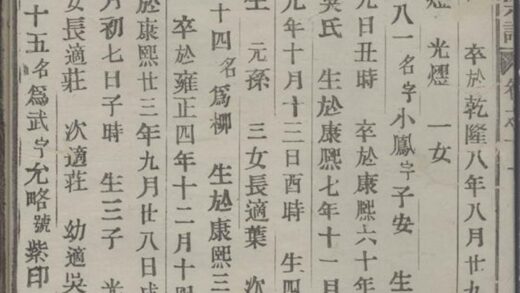 卒於乾隆八年八月廿九
光熠 一女
八一名字小鳳字子安 生
日丑時 卒於康熙六十年
吳氏 生於康熙七年十一月
元年十月十三日酉時 生四
生 元孫 三女長適葉 次
十四名為柳 生於康熙三
卒於雍正四年十二月十四
於康熙廿三年九月廿八日戌
月初七日子時 生三子 光
女長適莊 次適莊 幼適吳
十五名為武字允略號紫印